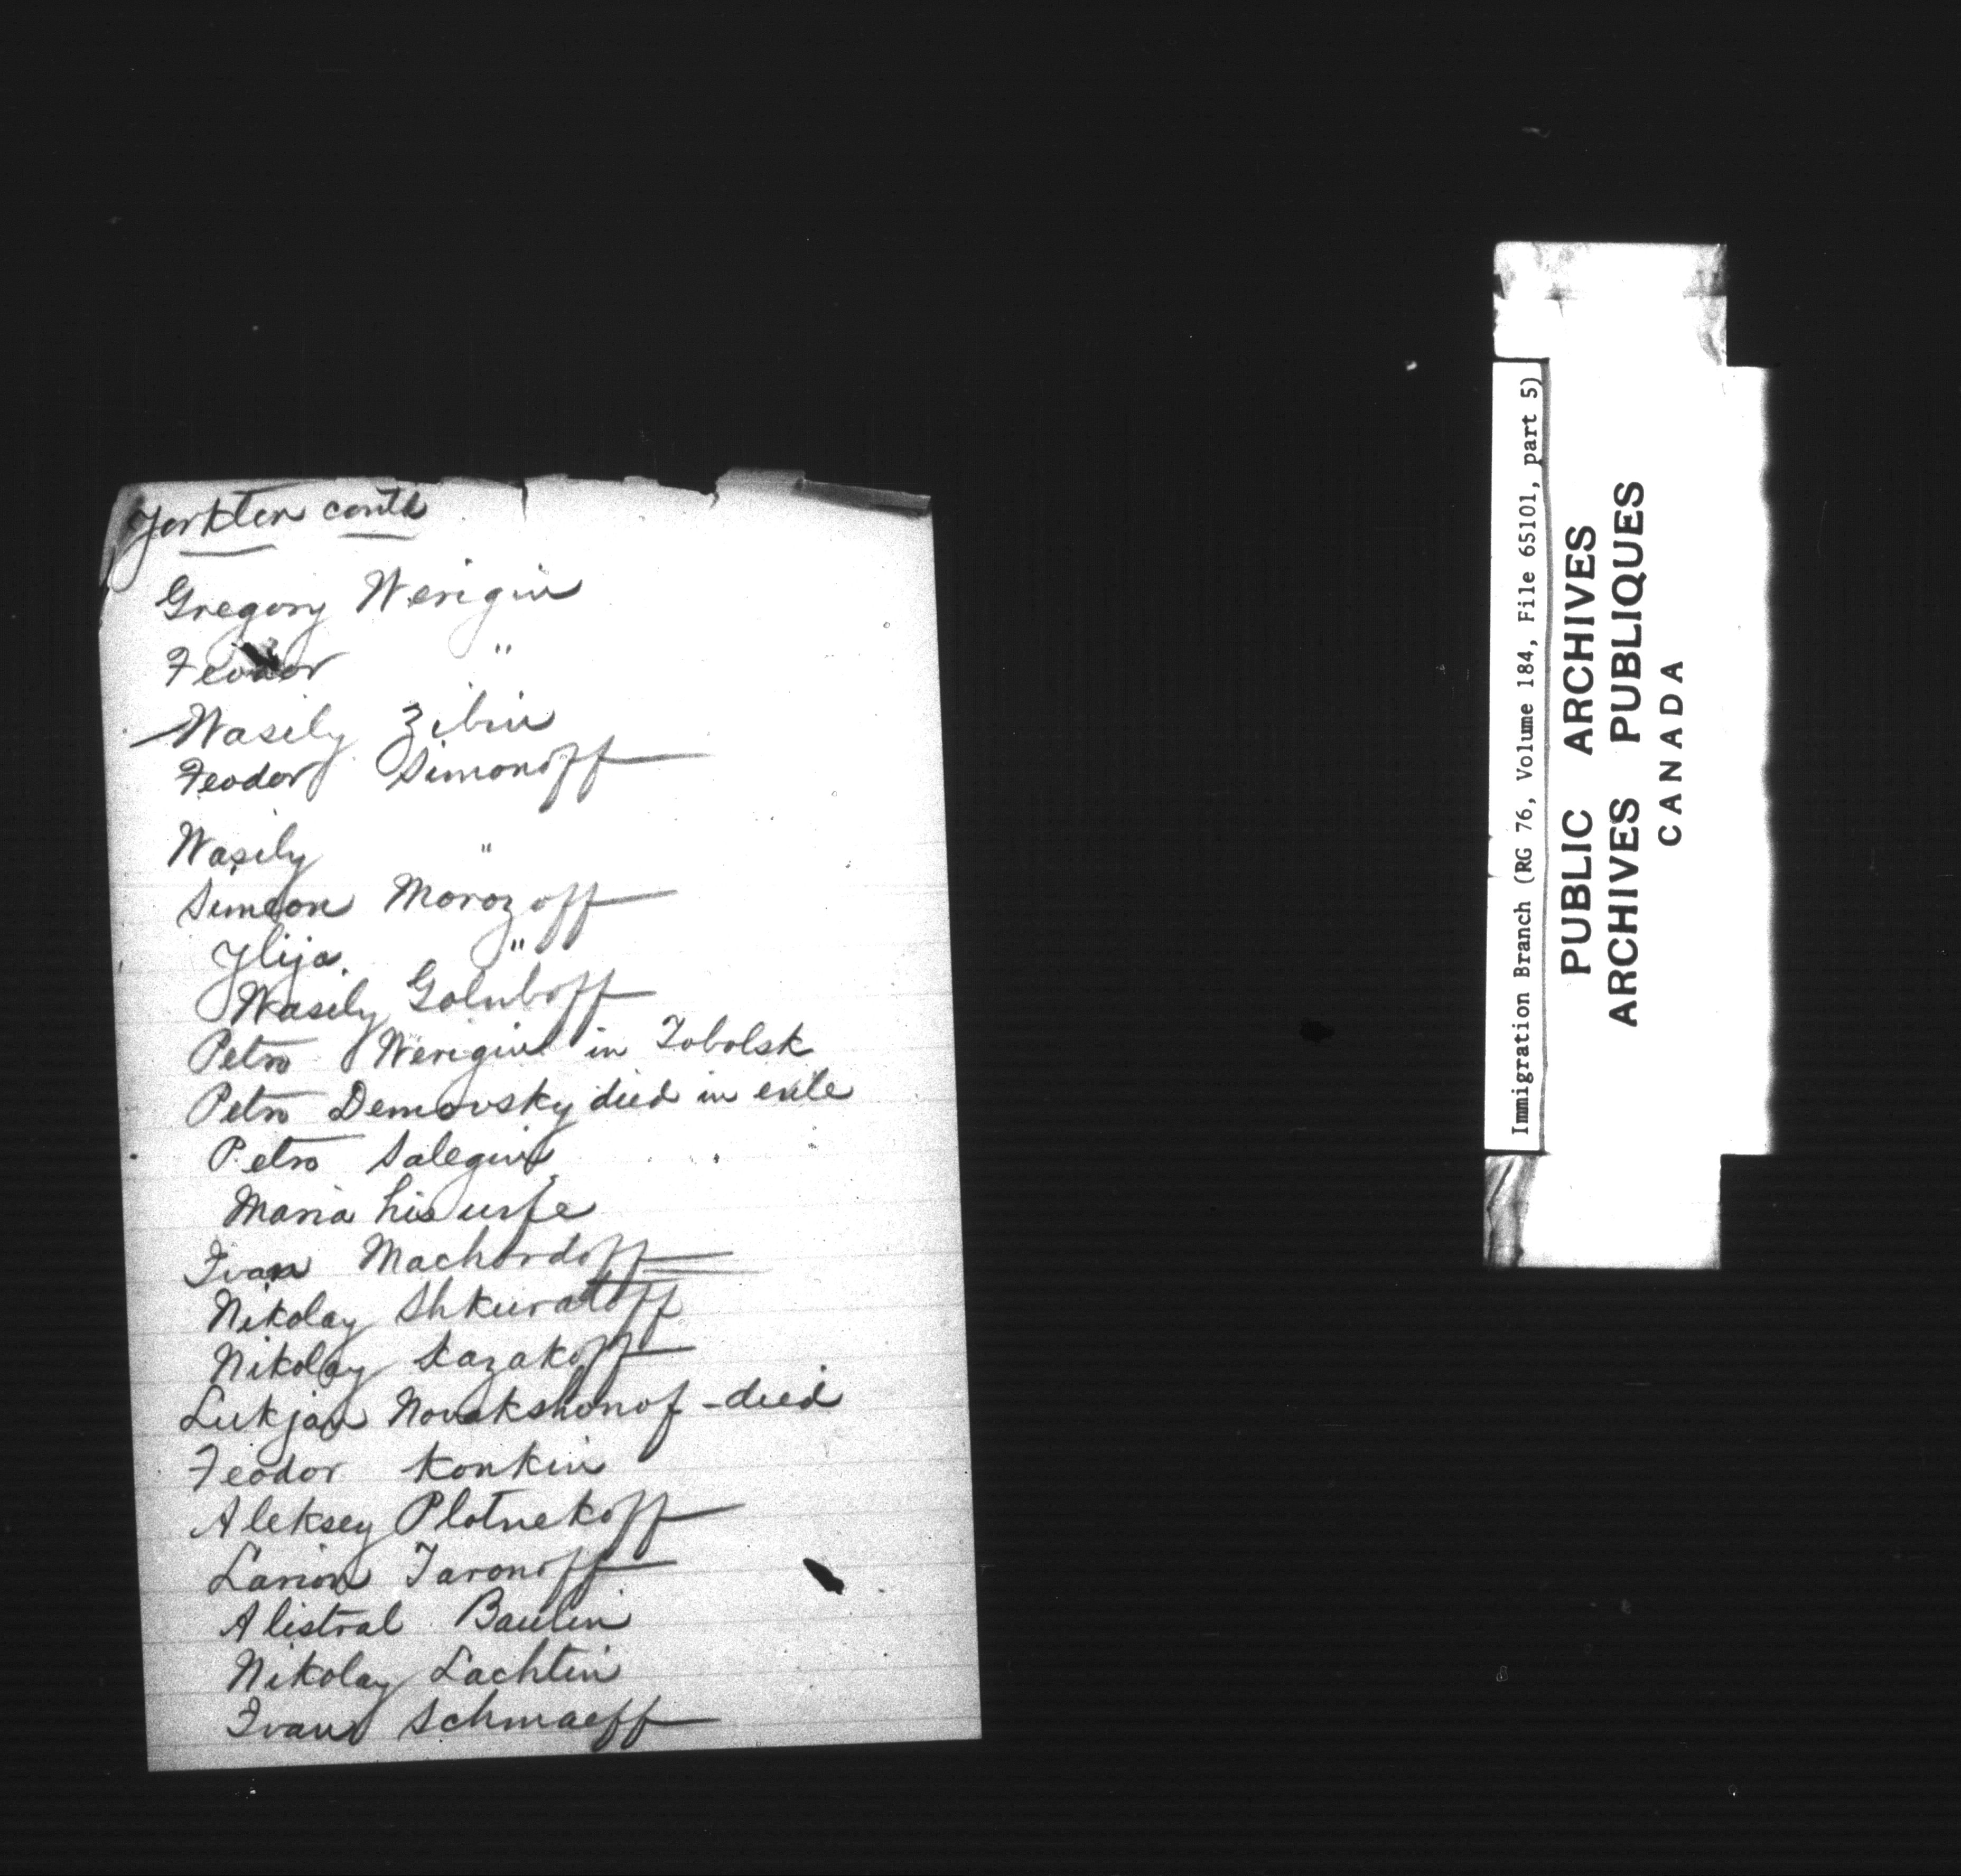 Yorkton contd
Gregory Werigin
Feodor "
Wasily Zibin
Feodor Simonoff
Wasily "
Simeon Morozoff
Ylija "
Wasily Goluboff
Petro Werigin in Tobolsk
Petro Demovsky died in exile
Petro Salegin
Maria his wife
Ivan Machordoff
Nikolay Shkuratoff
Nikolay Kazakoff
Lukjan Novokshonof - died
Feodor Konkin
Aleksey Plotnekoff
Larion Taronoff
Alistral Baulin
Nikolay Lachtin
Ivan Schmaeff
Immigration Branch (RG 76, Volume 184, File 65101, part 5)
PUBLIC ARCHIVES
ARCHIVES PUBLIQUES
CANADA